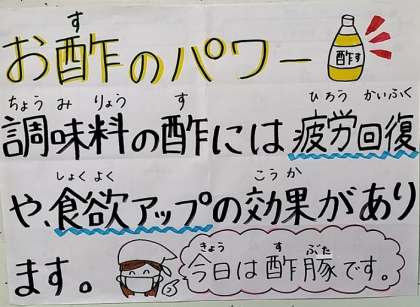 す
お酢のパワー
酢す
ちょう み りょう す ひろう かいふく
調味料の酢には疲労回復
しょく よく こう か
や、食欲アップの効果があり
ます。
きょう す ぶた
今日は酢豚です。